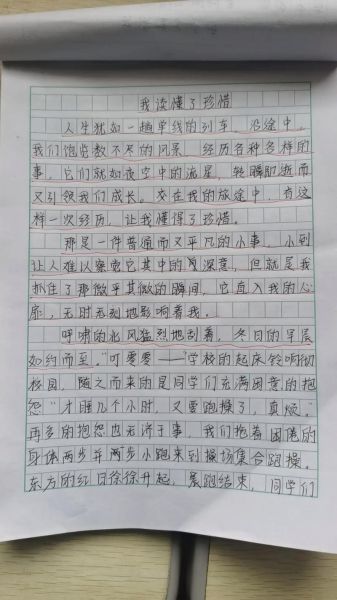 我读懂了珍惜
人生犹如一趟单线的列车，沿途中，
我们饱览数不尽的风景，经历各种各样的
事，它们就如夜空中的流星，转瞬即逝而
又引领我们成长。在我的旅途中，有这
样一次经历，让我懂得了珍惜。
那是一件普通而又平凡的小事，小到
让人难以察觉它其中的深意，但就是我
抓住了那微乎其微的瞬间，它直入我的心
扉，无时无刻地影响着我。
呼啸的北风猛烈地刮着，冬日的早晨
如约而至。"叮零零——"学校的起床铃响彻
校园，随之而来的是同学们充满困意的抱
怨"才睡几个小时，又要跑操了，真烦。"
再多的抱怨也无济于事，我们拖着困倦的
身体两步并两步小跑来到操场集合跑操。
东方的红日徐徐升起，晨跑结束，同学们